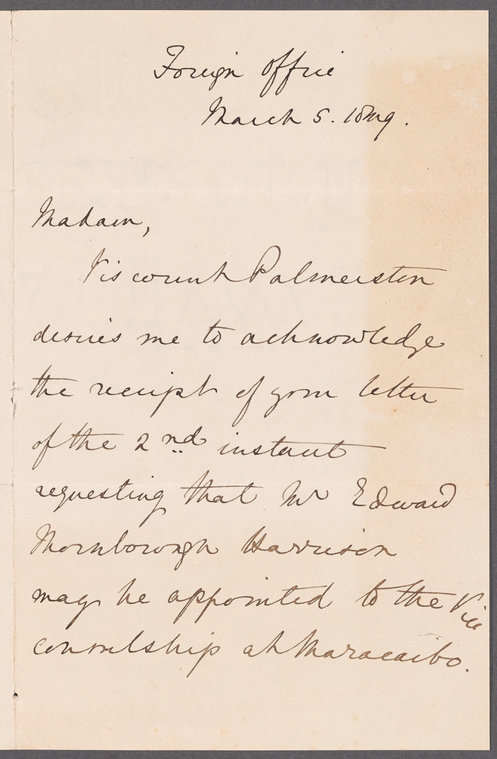 Foreign Office
March 5. 1849.
Madam,
Viscount Palmerston
desires me to acknowledge
the receipt of your letter
of the 2nd instant
requesting that Mr Edward
Thornborough Harrison
may be appointed to the Vice
consulship at Maracaibo.